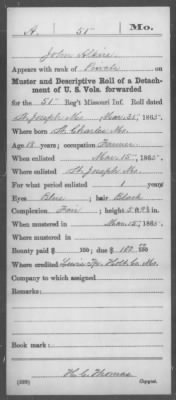 A. 51 Mo.
John
Appears with rank of Private on
Muster and Descriptive Roll of a Detach-
ment of U. S. Vols. forwarded
for the 51" Reg't Missouri Inf. Roll dated
St. Joseph Mo Mar. 25, 1865.
Where born St. Charles Mo.
Age 18 years; occupation Farmer
When enlisted Mar. 15, 1865.
Where enlisted St. Joseph Mo.
For what period enlisted 1 years
Eyes Blue; hair Black
Complexion Fair; height 5 ft. in.
When mustered in Mar. 15, 1865.
Where mustered in
Bounty paid $ 100; due $ 100
Where credited Lewis Tp. Holt Co. Mo.
Company to which assigned
Remarks:
Book mark:
H. C. Thomas
(339) Copyist.